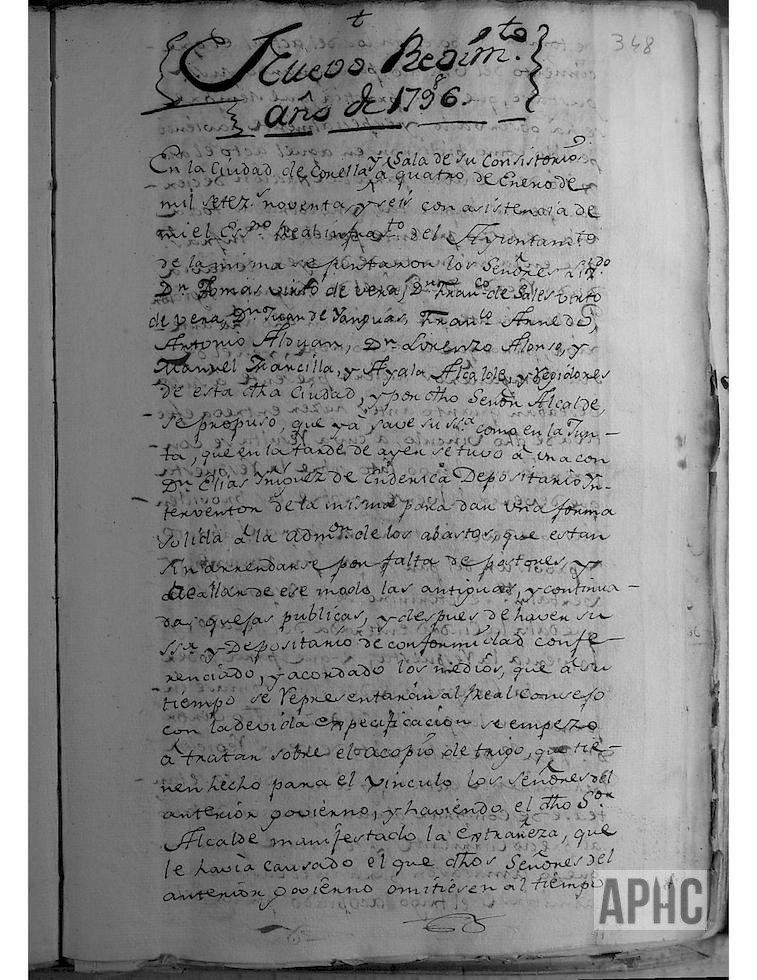 348
t
Nuebo Regim.to
año de 1796
En la Ciudad de Corella, y Sala de su Consistorio
a quatro de Enero de
mil setez.s noventa, y seis con asistencia de
mi el Es.no Real infras.to del Ayuntam.to
de la misma se juntaron los Señores
Dn. Tomas Virto de vera, Dn. Fran.co de Sales Virto
de vera, Dn. Juan de Yanguas, Fran.co Arnedo,
Antonio Alduan, Dn. Lorenzo Alonso, y
Manuel Mancilla, y Ayala Alcalde, y Regidores
de esta dha Ciudad, y por dho Señor Alcalde,
se propuso, que ya save su ss.a como en la Jun-
ta, que en la tarde de ayer se tuvo a una con
Dn. Elias Yñiguez de Depositario In-
terventor de la misma para dar una forma
solida â la adm.on de los abastos, que estan
sin arrendarse por falta de postores, y
acallar de ese modo las antiguas, y continua-
das quejas publicas, y despues de haver su
ssa. y Depositario de conformidad confe-
renciado, y acordado los medios, que â su
tiempo se representarán al Real Consejo
con la devida expecificacion se empezo
â tratar sobre el acopio de trigo, que tie-
nen hecho para el vinculo los Señores del
anterior govierno, y haviendo el dho S.or
Alcalde manifestado la extrañeza, que
le havia causado el que dhos Señores del
anterior govierno omitiesen al tiempo
APHC